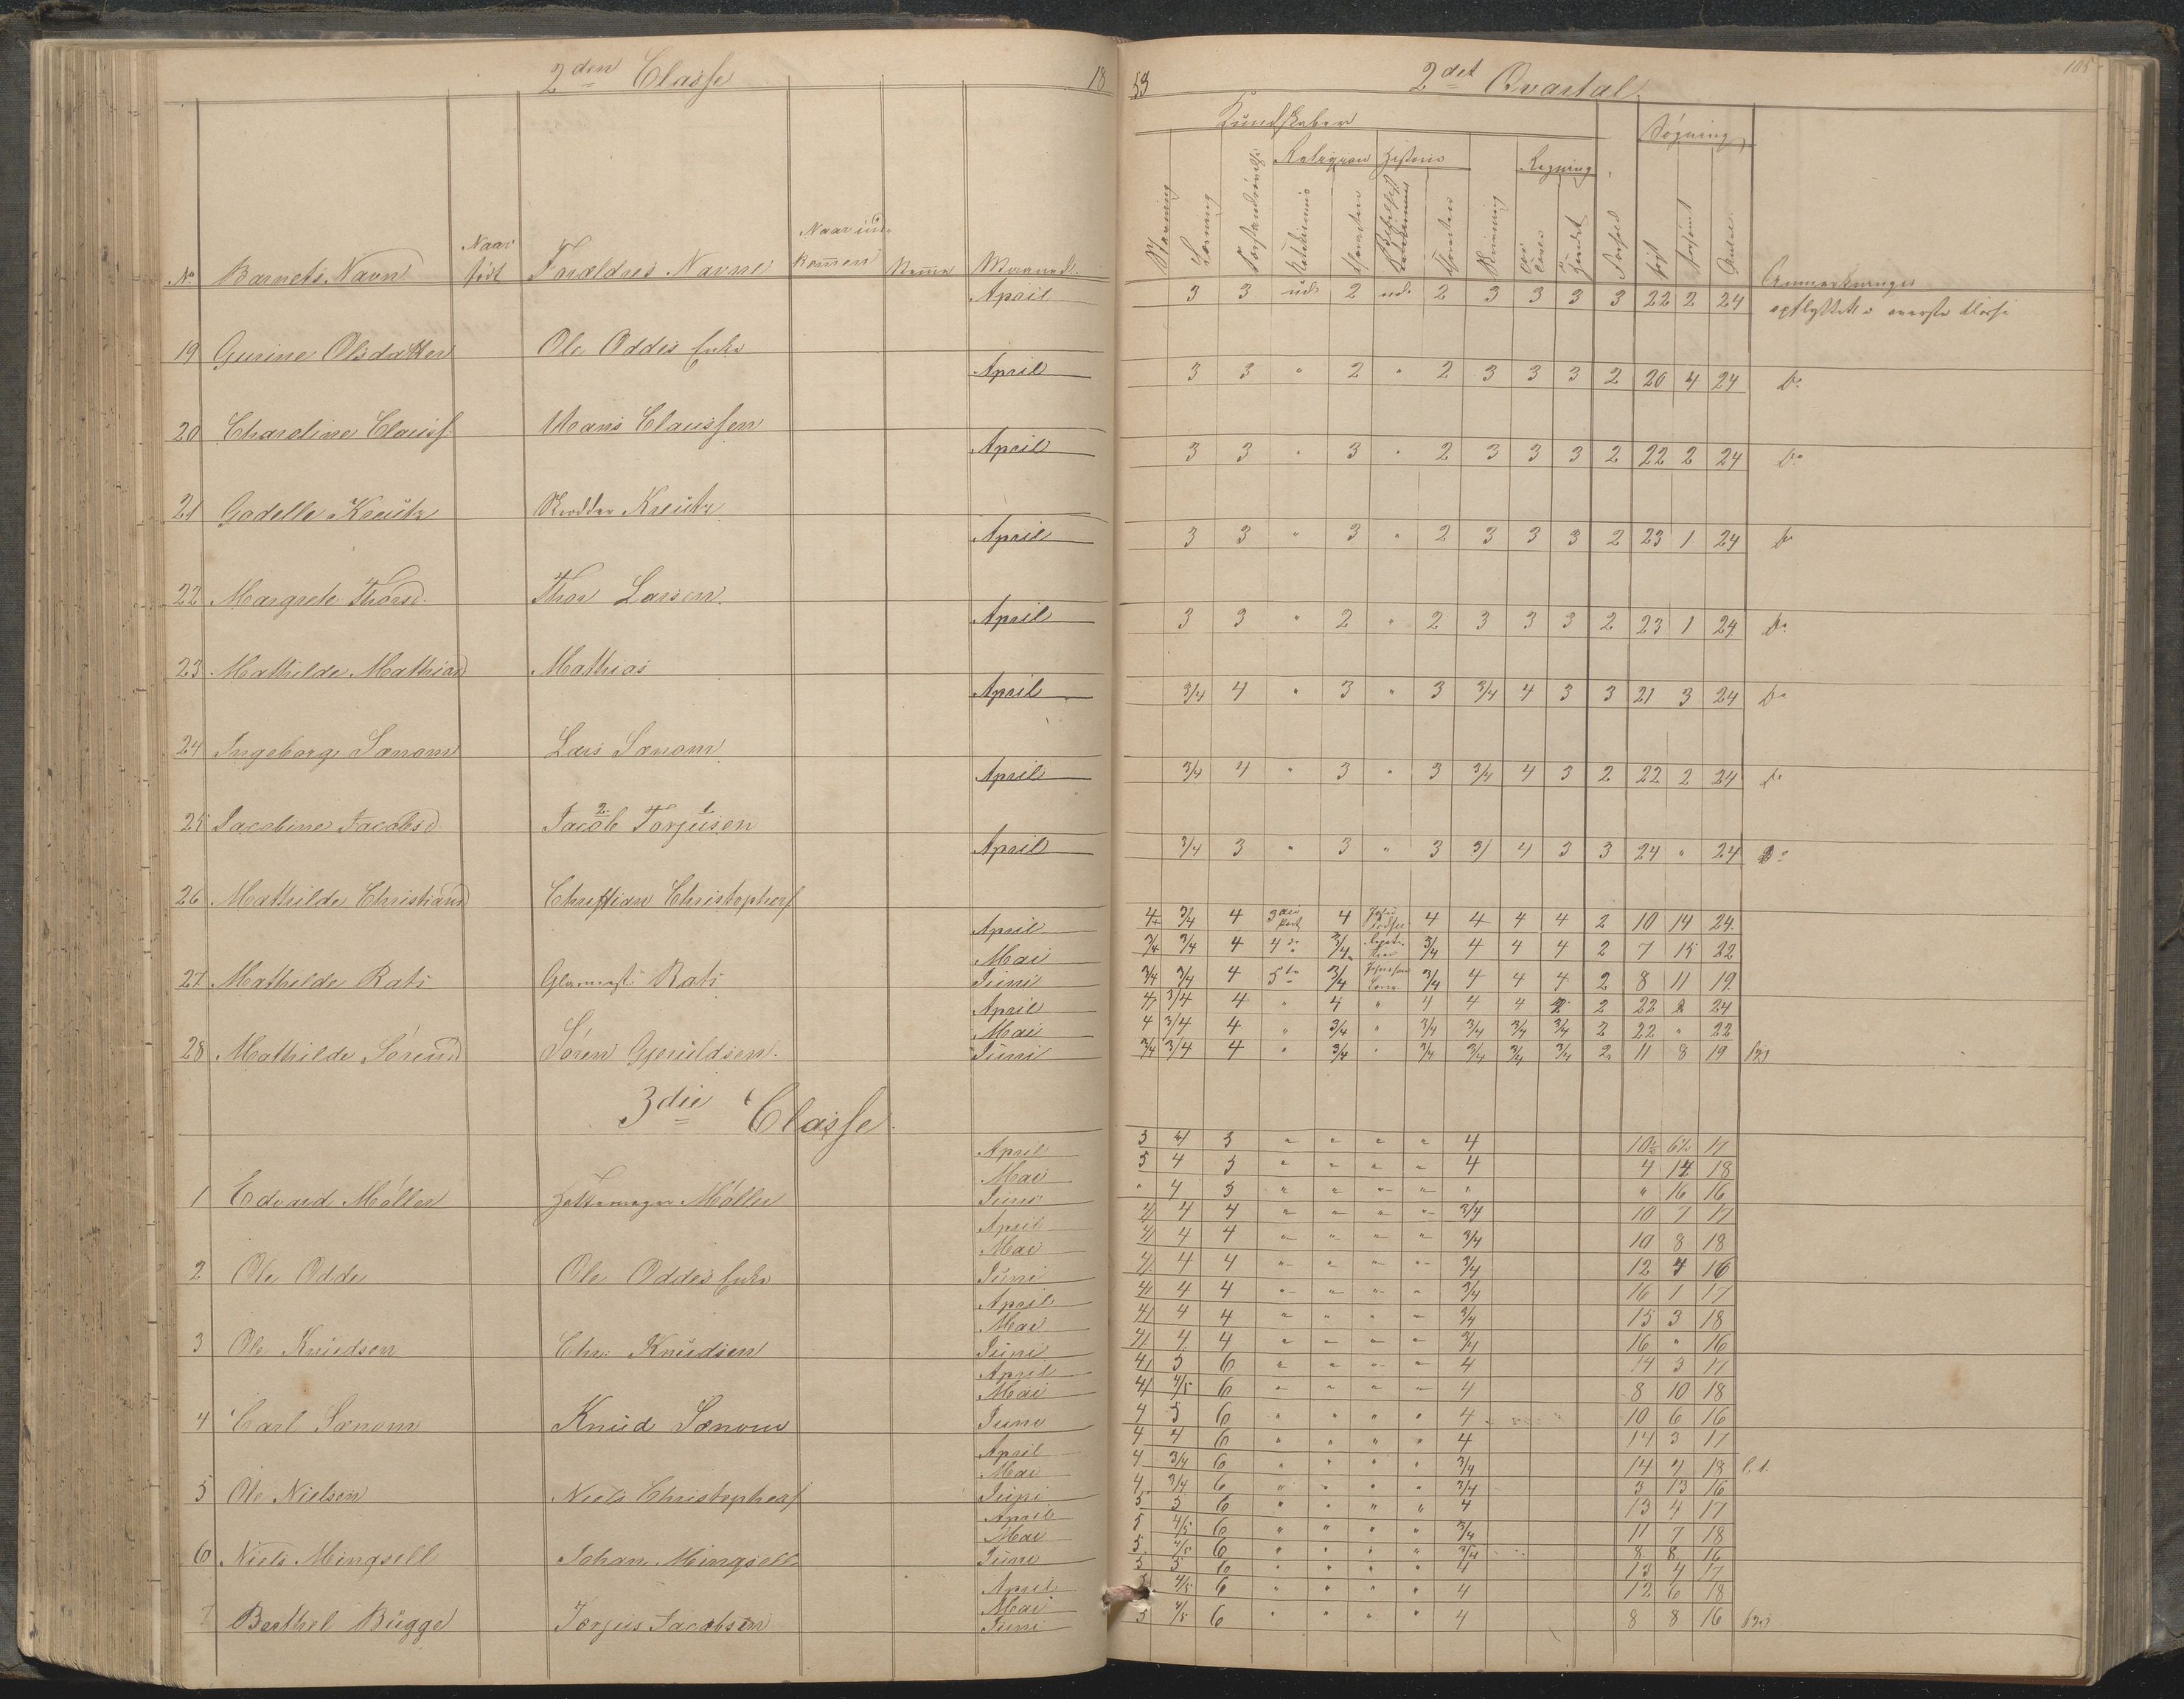 2den Classe 18
53 2det Qvartal 105
Kundskaber Søgning
Religion Historie Regning
No Barnets Navn Naar født Forældres Navne Naar ind- kommen Maaned
Stavning Læsning Forstandsøvelse Katekismus Skrivning Forhold Anmærkninger
April 3 3 ud. 2 ud. 2 3 3 3 3 22 2 24 opflyttet i øverste Klasse
19 Gurine Olsdatter Ole Oddes Enke
April 3 3 " 2 " 2 3 3 3 2 20 4 24 Do
20 Charoline Clauss. Hans Claussen
April 3 3 " 3 " 2 3 3 3 2 22 2 24 Do
21 Godelle Kreutz Kreutz
April 3 3 " 3 " 2 3 3 3 2 23 1 24 Do
22 Margrete Thorsd. Thor Larsen
April 3 3 " 2 " 2 3 3 3 2 23 1 24 Do
23 Mathilde Mathiasd Mathias
April 3/4 4 " 3 " 3 3/4 4 3 3 21 3 24 Do
24 Ingeborg Sønom Lars Sønom
April 3/4 4 " 3 " 3 3/4 4 3 2 22 2 24 Do
25 Jacobine Jacobsd. Jacob Torjusen
April 3/4 3 " 3 " 3 3/ 4 3 3 24 " 24 Do
26 Mathilde Christiansd Christian Christophers
April 4 3/4 4 3die Part 4 4 4 4 4 2 10 14 24
Mai 3/4 3/4 4 4de 3/4 3/4 4 4 4 2 7 15 22
27 Mathilde Rats Rats Juni 3/4 3/4 4 5te 3/4 3/4 4 4 4 2 8 11 19
April 4 3/4 4 " 4 " 4 4 4 2 2 22 2 24
Mai 4 3/4 4 " 3/4 " 3/4 3/4 3/4 3/4 2 22 " 22
28 Mathilde Sørensd Søren Gjeruldsen Juni 3/4 3/4 4 " 3/4 " 3/4 3/4 3/4 3/4 2 11 8 19
3die Classe
April 5 4 5 " " " " 4 10½ 6½ 17
Mai 5 4 5 " " " " 4 4 14 18
1 Edvard Møller Møller Juni " 4 5 " " " " " " 16 16
April 4 4 4 " " " " 3/4 10 7 17
Mai 4 4 4 " " " " 3/4 10 8 18
2 Ole Odde Ole Oddes Enke Juni 4 4 4 " " " " 3/4 12 4 16
April 4 4 4 " " " " 3/4 16 1 17
Mai 4 4 4 " " " " 3/4 15 3 18
3 Ole Knudsen Chr. Knudsen Juni 4 4 4 " " " " 3/4 16 " 16
April 4 5 6 " " " " 4 14 3 17
Mai 4 4/5 6 " " " " 4 8 10 18
4 Carl Sønom Knud Sønom Juni 4 5 6 " " " " 4 10 6 16
April 4 4 6 " " " " 4 14 3 17
Mai 4 3/4 6 " " " " 3/4 14 4 18
5 Ole Nielsen Niels Christophers Juni 4 3/4 6 " " " " 3/4 3 13 16
April 5 5 6 " " " " 4 13 4 17
Mai 5 4/5 6 " " " " 3/4 11 7 18
6 Niels Mingsell Johan Mingsell Juni 5 4/5 6 " " " " 3/4 8 8 16
April 5 5 6 " " " " 4 13 4 17
Mai 4/5 6 " " " " 4 12 6 18
7 Berthel Bugge Torjus Jacobsen Juni 5 4/5 6 " " " " 4 8 8 16